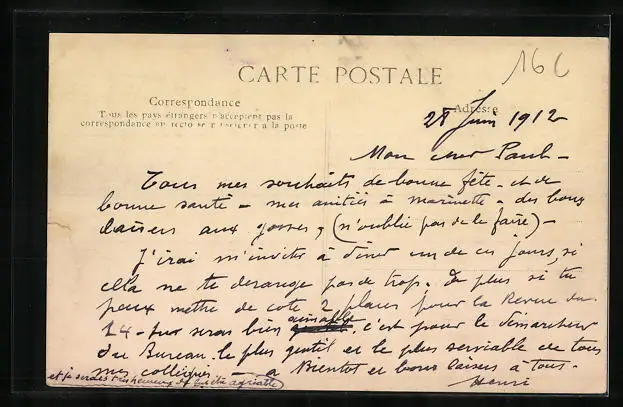 16 C
CARTE POSTALE
Correspondance
Tous les pays étrangers n'acceptent pas la
correspondance au recto se renseigner à la poste
Adresse
28 Juin 1912
Mon cher Paul -
Tous mes souhaits de bonne fête - et de
bonne santé - mes amitiés à marinette - des bons
baisers aux gosses, (n'oublie pas de le faire) -
J'irai m'inviter à dîner un de ces jours, si
cela ne te dérange pas de trop. De plus si tu
peux mettre de cote 2 places pour la Revue du
14 - tu seras bien aimable. c'est pour le démarcheur
du Bureau. le plus gentil et le plus serviable de tous
mes collègues - a Bientot et bons baisers à tous -
et je serais très heureux de lui être agréable
Henri